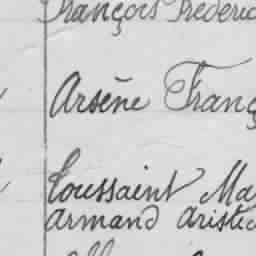 François Frédéric
Arsène Franç
Toussaint Ma
Armand Aristid